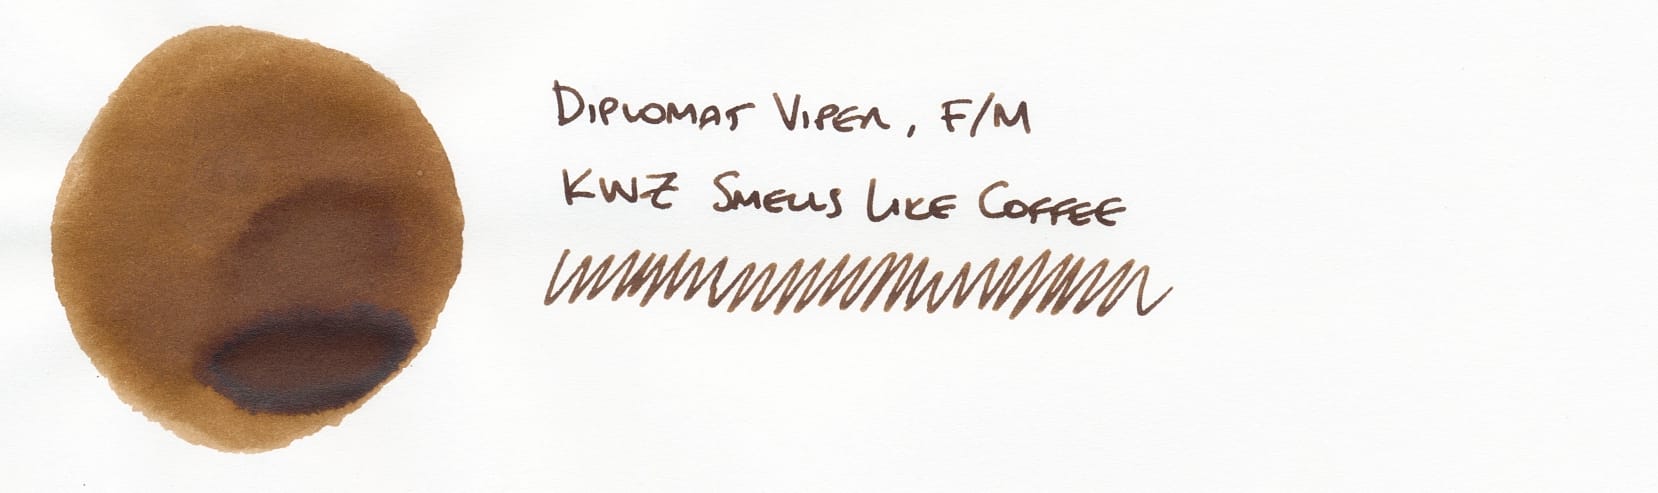 Diplomat Viper, F/M
KWZ Smells Like Coffee